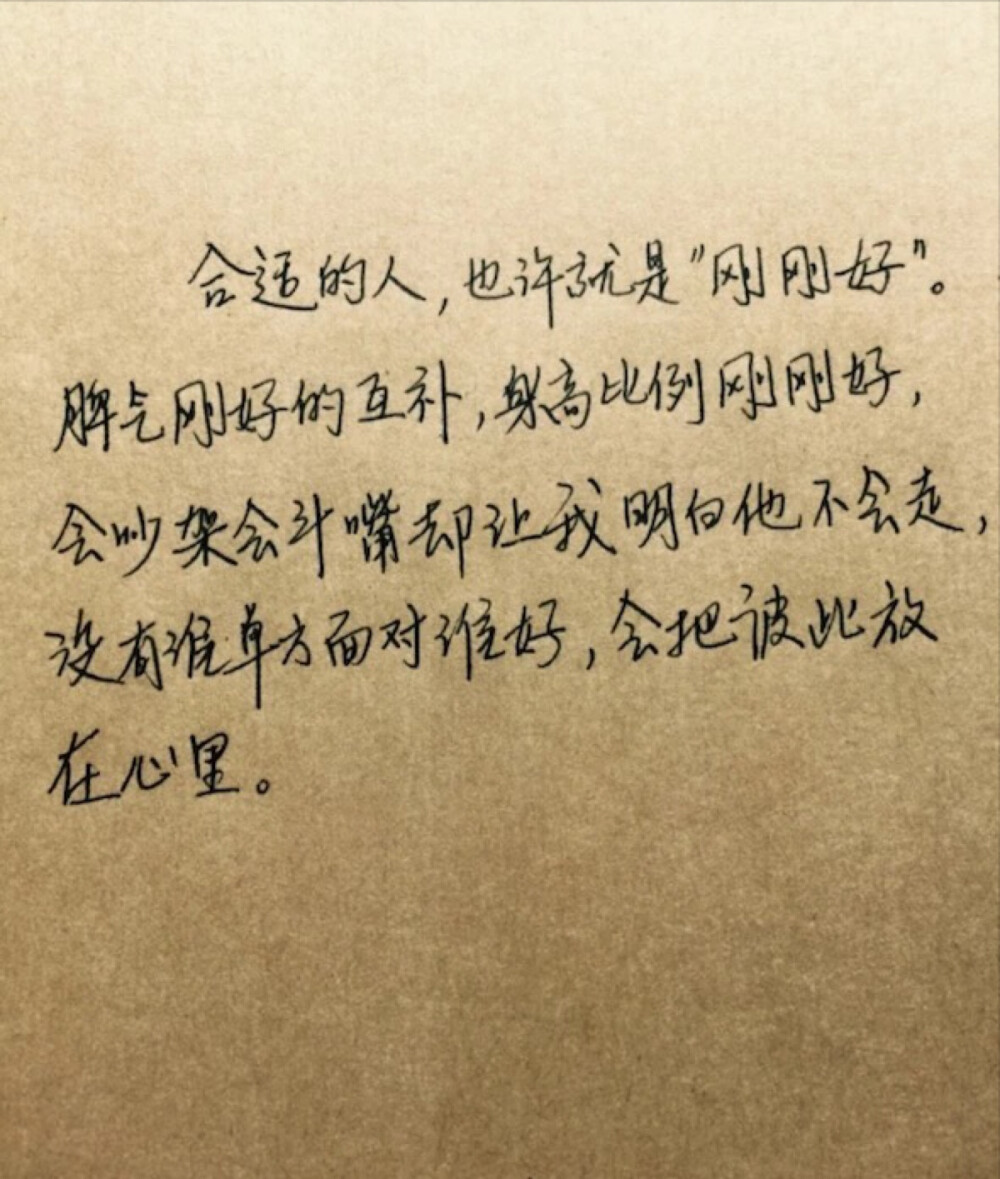 合适的人,也许就是"刚刚好"。
脾气刚好的互补,身高比例刚刚好,
会吵架会斗嘴却让我明白他不会走,
没有谁单方面对谁好,会把彼此放
在心里。